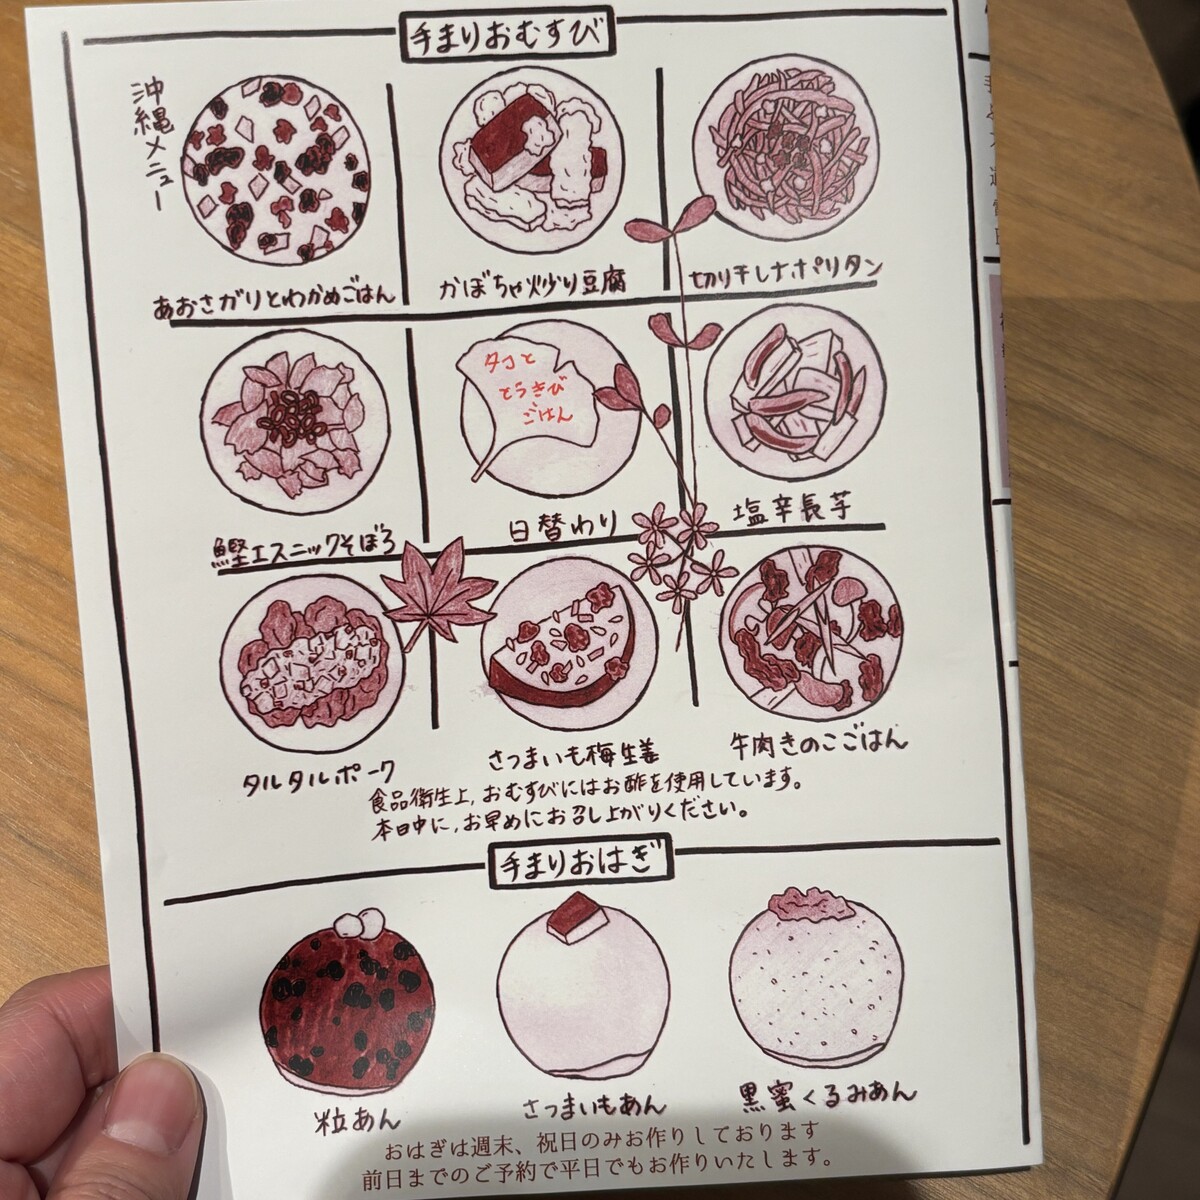 手まりおむすび
沖縄メニュー
あおさガリとわかめごはん
かぼちゃ炒り豆腐
切り干しナポリタン
鰹エスニックそぼろ
タコと
とうきび
ごはん
日替わり
塩辛長芋
タルタルポーク
さつまいも梅生姜
牛肉きのこごはん
食品衛生上、おむすびにはお酢を使用しています。
本日中に、お早めにお召し上がりください。
手まりおはぎ
粒あん
さつまいもあん
黒蜜くるみあん
おはぎは週末、祝日のみお作りしております
前日までのご予約で平日でもお作りいたします。